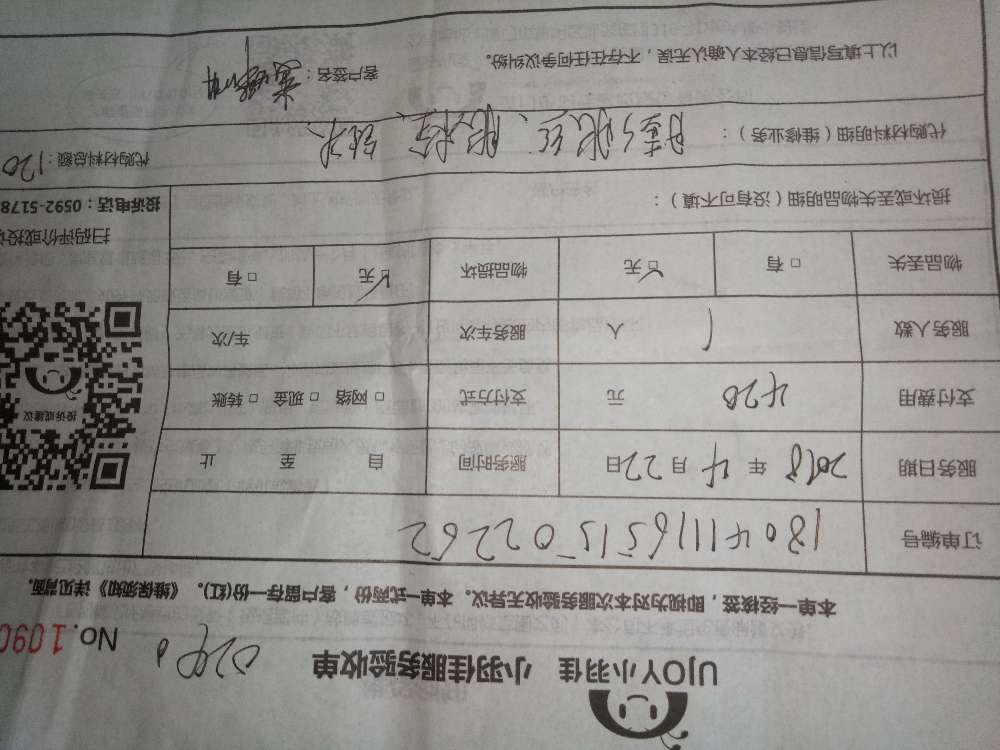 UJOY小羽佳 小羽佳服务验收单
No.1090
本单一经核签，即视为对本次服务验收无异议。本单一式两份，客户留存一份(红)。《维保须知》详见背面。
订单编号 180411165115102262
服务日期 2018 年 4 月 22 日 服务时间 自 至 止
支付费用 420 元 支付方式 □ 网络 □ 现金 □ 转账
服务人数 1 人 服务车次 车/次
物品丢失 □ 有 ☑ 无 物品损坏 ☑ 无 □ 有
投诉或建议
扫码评价或投诉
投诉电话：0592-5178
损坏或丢失物品明细（没有可不填）：
代购材料明细（维修业务）：
代购材料总额：120
以上填写信息已经本人确认无误，不存在任何争议纠纷。
客户签名：